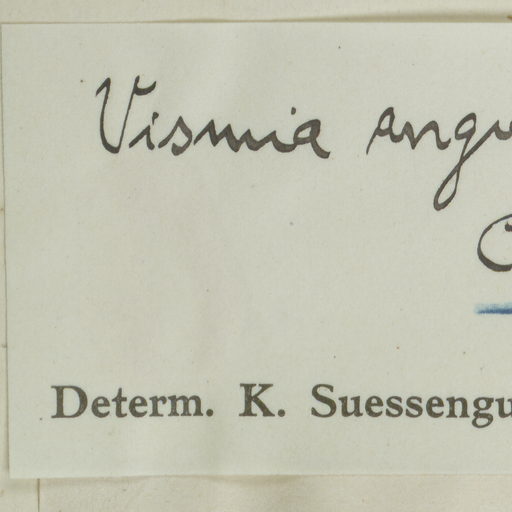 Vismia angu
C
Determ. K. Suessengu